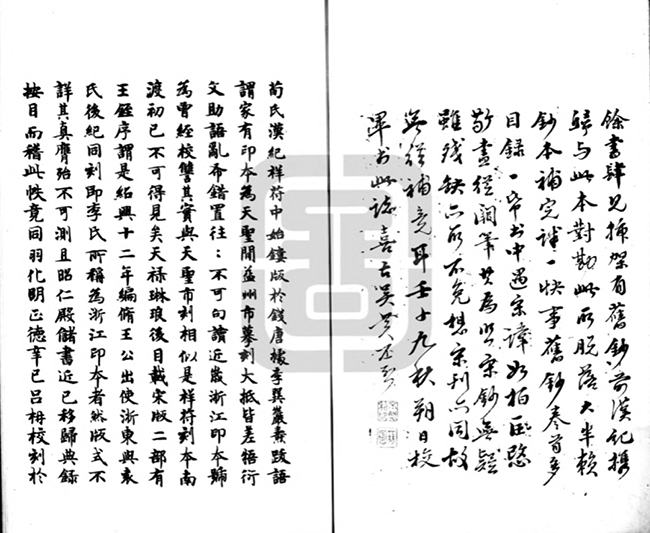 餘書肆見插架有舊鈔前漢紀攜
歸与此本對勘此所脫落大半賴
鈔本補完誠一快事舊鈔卷首多
目錄一帋書中遇宋諱如桓匡慇
敬盡從闕筆其為照宋鈔無疑
雖殘缺亦所不免想宋刊亦同故
無從補竟耳壬子九秋朔日校
畢書此誌喜古吳黃
荀氏漢紀祥符中始鏤版於錢唐據李巽巖燾跋語
謂家有印本為天聖間益州市摹刻大抵皆差悟衍
文助語亂希錯置往:不可句讀近歲浙江印本號
為曾經校讐其實與天聖市刻相似是祥符刻本南
渡初已不可得見矣天祿琳琅後目載宋版二部有
王銍序謂是紹興十二年編脩王公出使浙東與袁
氏後紀同刻即李氏所稱為浙江印本者然版式不
詳其真贗殆不可測且昭仁殿儲書近已移歸典錄
按目而稽此帙竟同羽化明正德辛巳呂枏校刻於